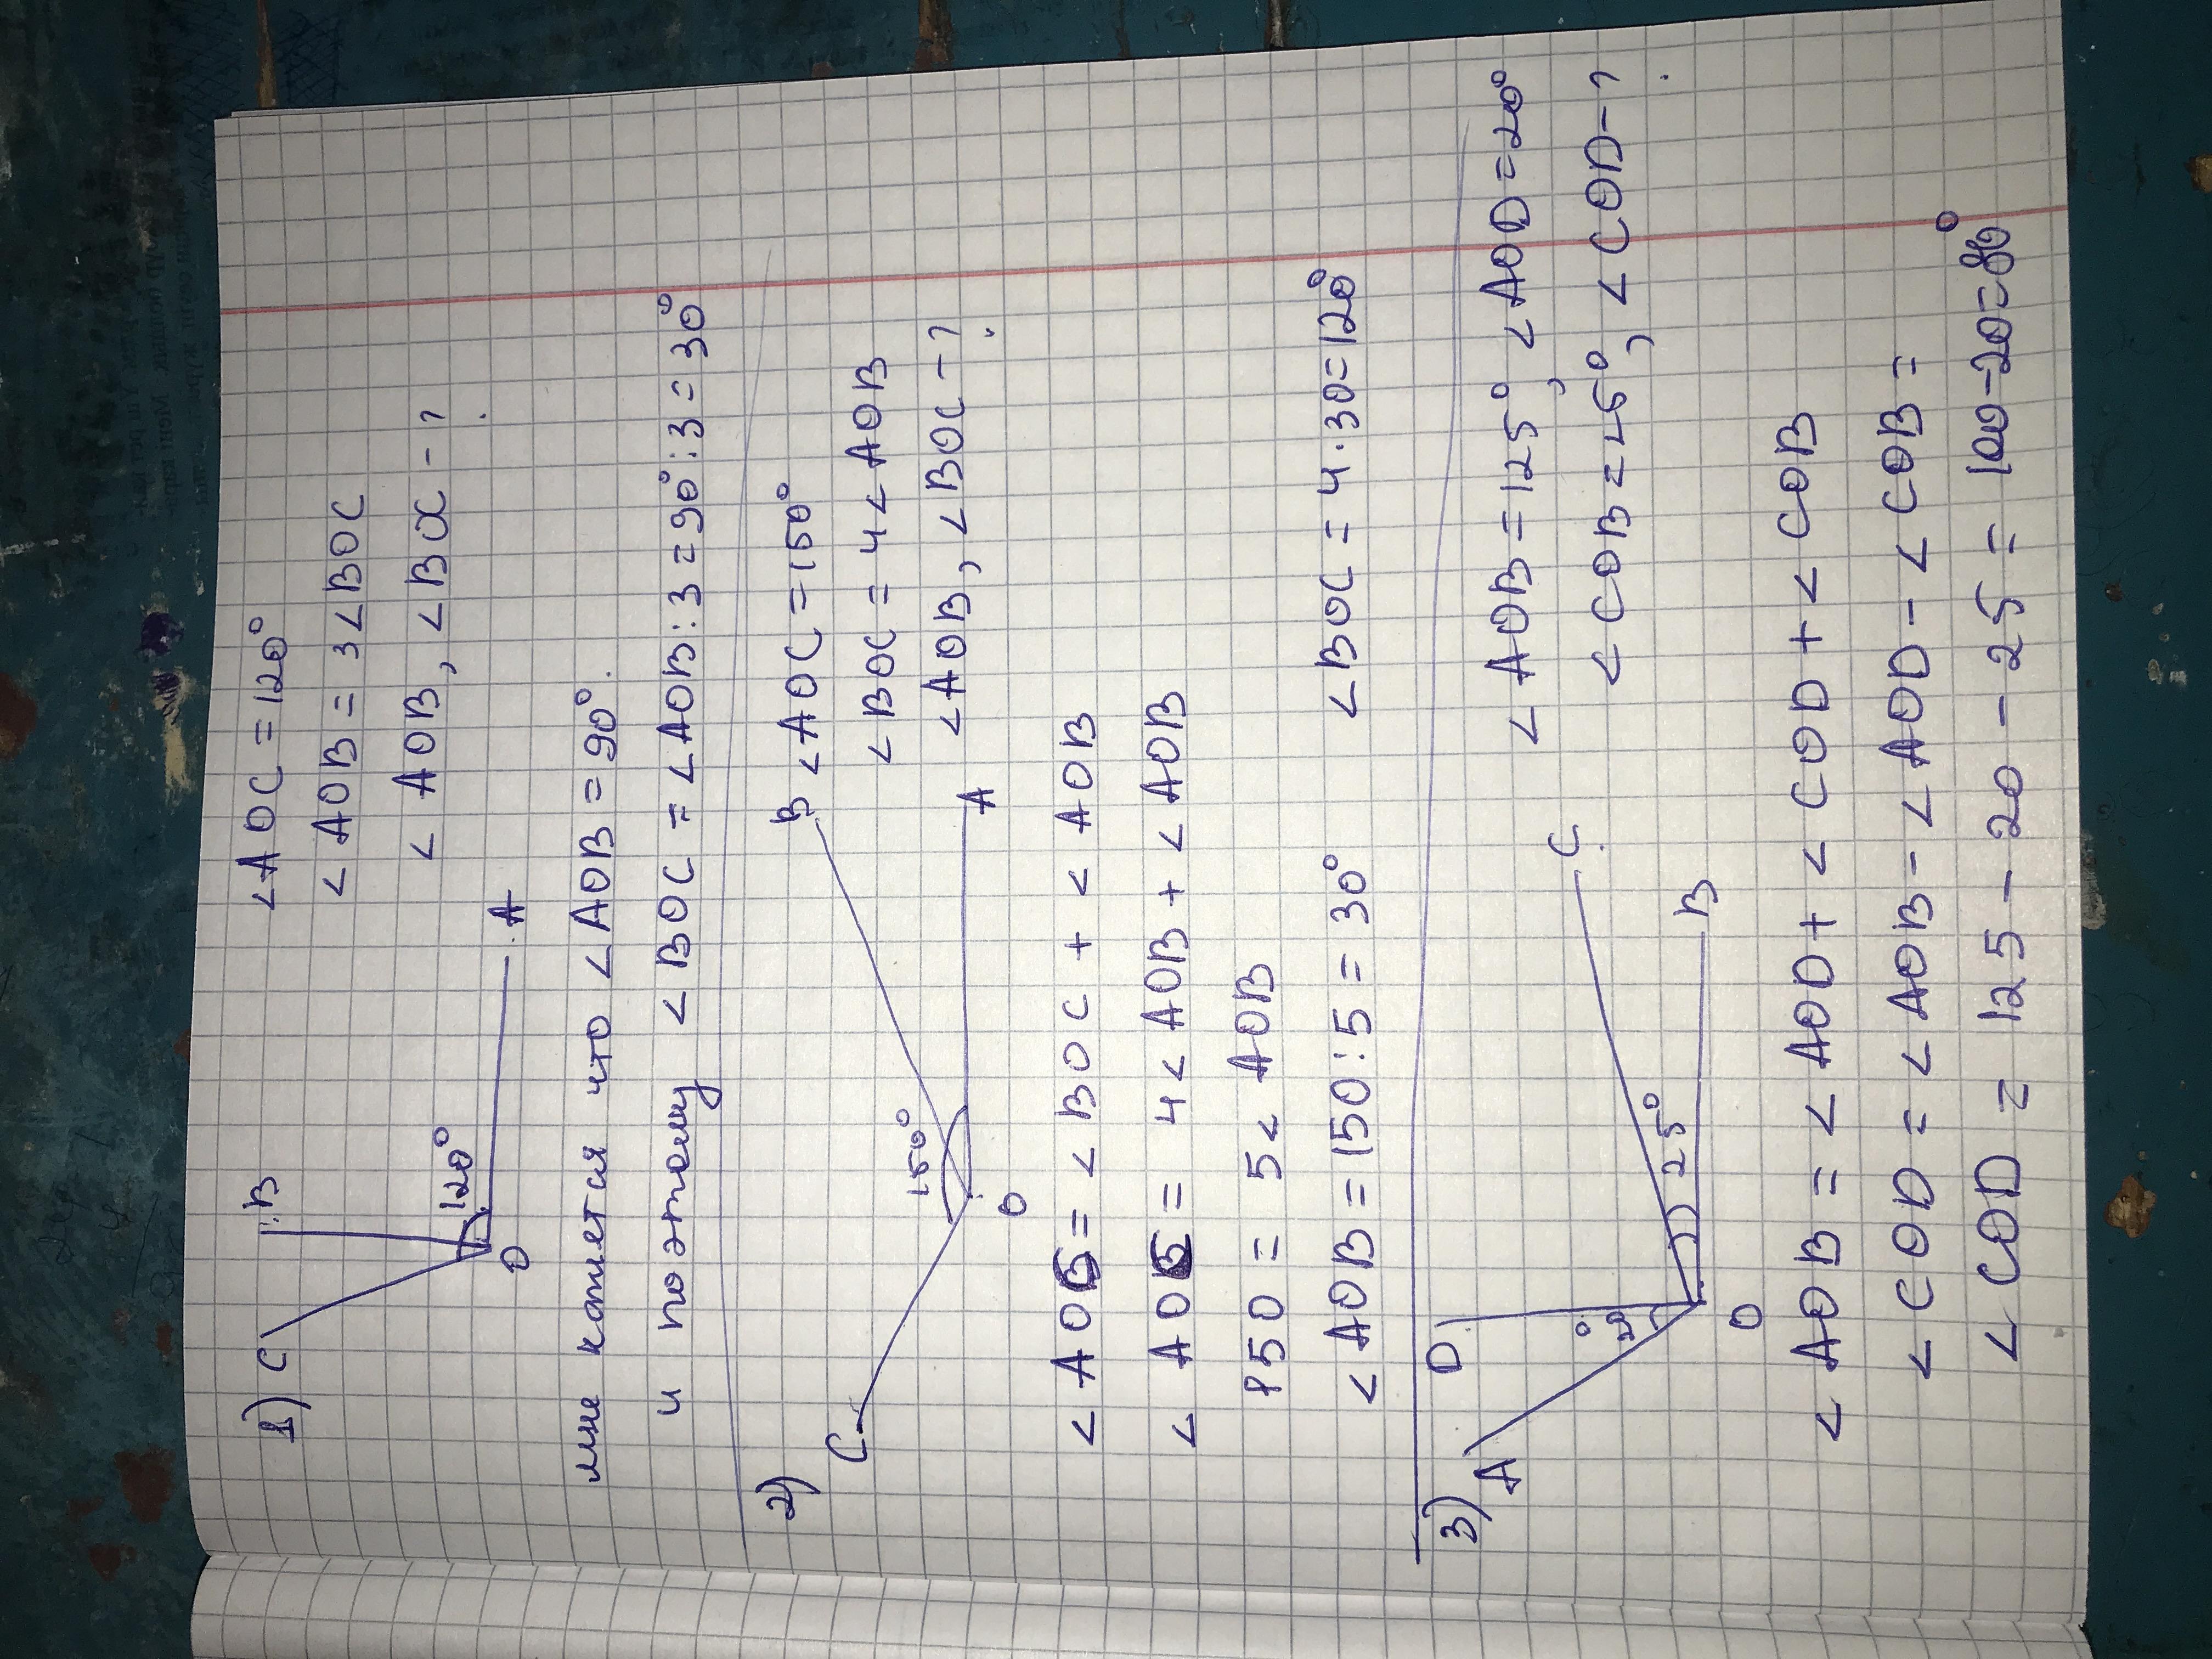 1) C
B
120°
O
A
<AOC=120°
<AOB=3<BOC
<AOB, <BOC-?
мне кажется что <AOB=90°.
и поэтому <BOC=<AOB:3=90°:3=30°
2)
C
B
150°
O
A
<AOC=150°
<BOC=4<AOB
<AOB, <BOC-?
<AOC=<BOC+<AOB
<AOC=4<AOB+<AOB
150=5<AOB
<AOB=150:5=30°
<BOC=4·30=120°
3)
A
D
20°
C
25°
B
O
<AOB=125°, <AOD=20°
<COB=25°, <COD-?
<AOB=<AOD+<COD+<COB
<COD=<AOB-<AOD-<COB=
<COD=125-20-25=100-20=80°